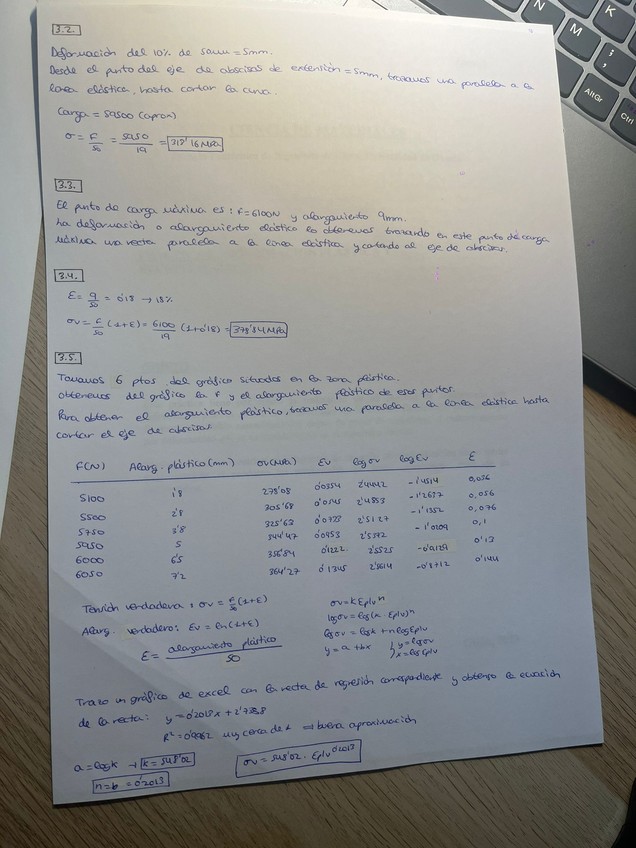 3.2.
Deformación del 10% de 50mm = 5mm.
Desde el punto del eje de abscisas de extensión = 5mm, trazamos una paralela a la
línea elástica, hasta cortar la curva.
Carga = 59500 (aprox)
σ = F/S0 = 5950/19 = 313'16 MPa
3.3.
El punto de carga máxima es: F=6100N y alargamiento 9mm.
La deformación o alargamiento elástico lo obtenemos trazando en este punto de carga
máxima una recta paralela a la línea elástica y cortando al eje de abscisas.
3.4.
E = 9/50 = 0'18 → 18%
σv = F/S0 (1+E) = 6100/19 (1+0'18) = 378'84 MPa
3.5.
Tomamos 6 ptos del gráfico situados en la zona plástica.
Obtenemos del gráfico la F y el alargamiento plástico de esos puntos.
Para obtener el alargamiento plástico, trazamos una paralela a la línea elástica hasta
cortar el eje de abscisas.
F(N) Alarg. plástico (mm) σv(MPa) Ev logσv logEv E
5100 1'8 278'08 0'0354 2'4442 -1'4514 0,036
5500 2'8 305'68 0'0545 2'4853 -1'2637 0,056
5750 3'8 325'63 0'0733 2'5127 -1'1352 0,076
5950 5 344'47 0'0953 2'5372 -1'0209 0,1
6000 6'5 356'84 0'1222 2'5525 -0'9129 0'13
6050 7'2 364'27 0'1345 2'5614 -0'8712 0'144
Tensión verdadera: σv = F/S0 (1+E)
Alarg. verdadero: Ev = ln(1+E)
E = alargamiento plástico / 50
σv = K Eplvⁿ
logσv = log(K · Eplv)ⁿ
logσv = logK + n logEplv
y = a + bx { y = logσv
x = logEplv
Trazo un gráfico de excel con la recta de regresión correspondiente y obtengo la ecuación
de la recta: y = 0'2013x + 2'7388
R² = 0'9962 muy cerca de 1 ⇒ buena aproximación
a = logK → K = 548'02
n = b = 0'2013
σv = 548'02 · Eplv^0'2013
K
N
M
;
:
AltGr
Ctrl